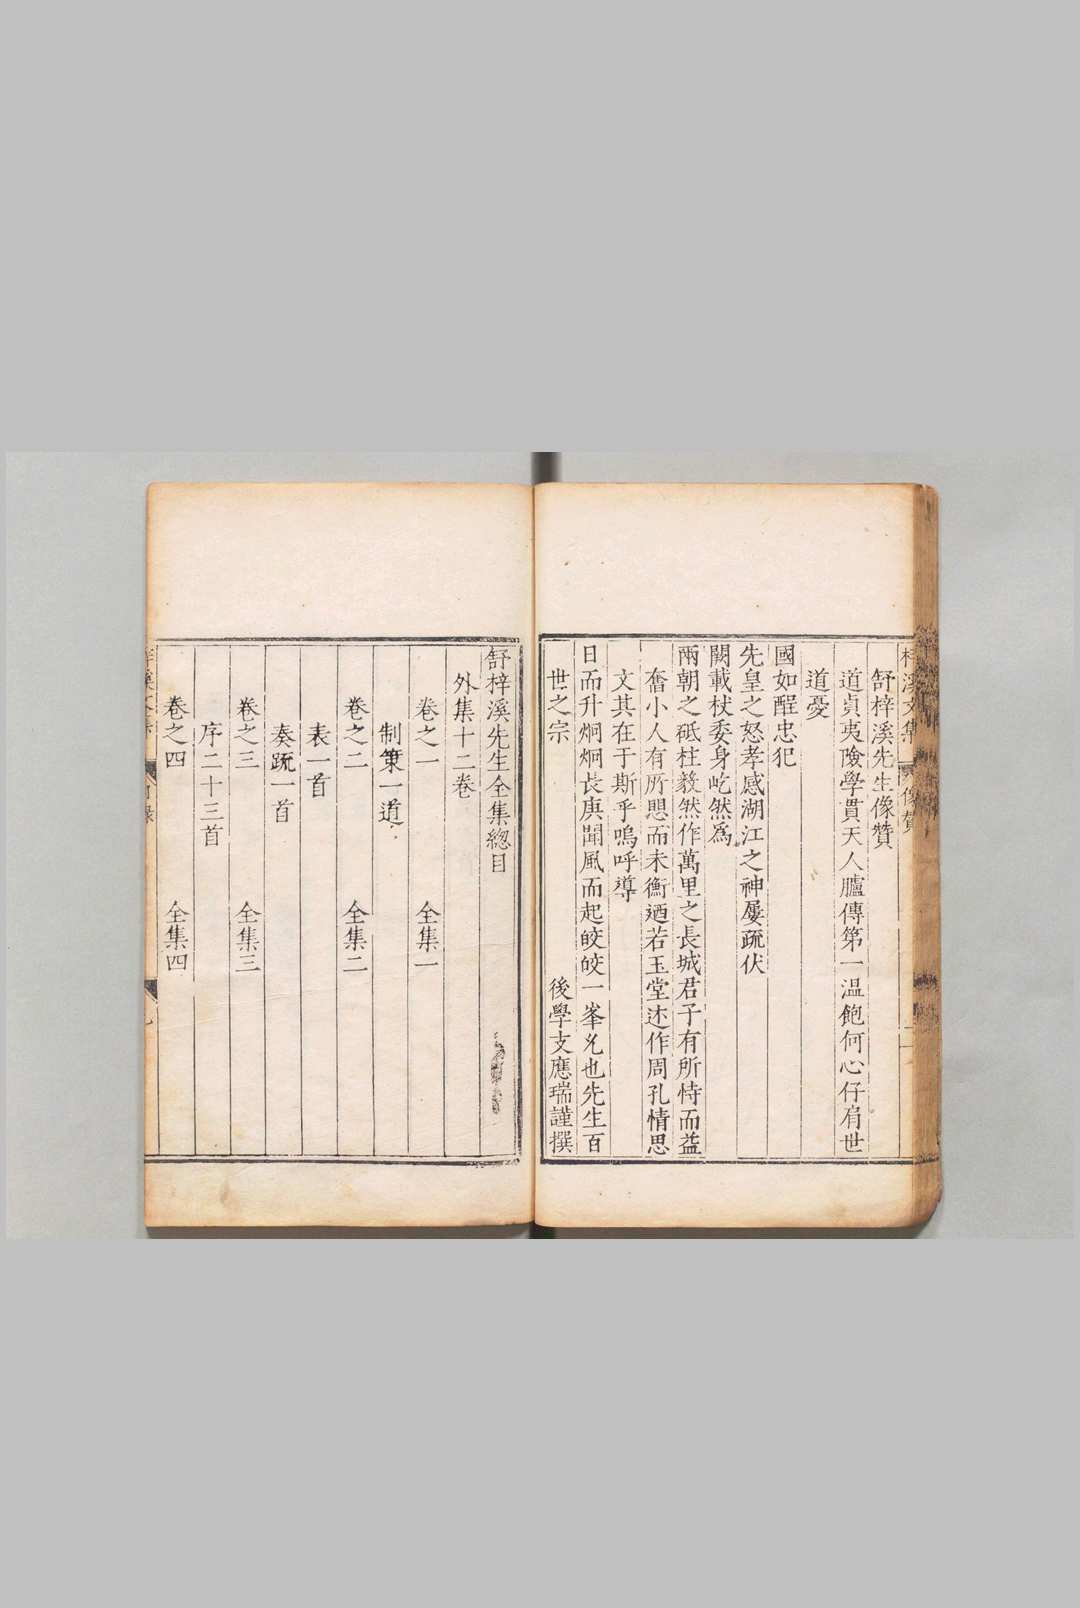 梓溪文集 像贊 二
舒梓溪先生像贊
道貞夷險學貫天人臚傳第一溫飽何心仔肩世
道憂
國如酲忠犯
先皇之怒孝感湖江之神屢疏伏
闕載杖委身屹然爲
兩朝之砥柱毅然作萬里之長城君子有所恃而益
奮小人有所愳而未衡迺若玉堂述作周孔情思
文其在于斯乎嗚呼導
日而升炯炯長庚聞風而起皎皎一峯兊也先生百
世之宗
後學支應瑞謹撰
舒梓溪先生全集總目
外集十二卷
卷之一 全集一
制策一道
卷之二 全集二
表一首
奏疏一首
卷之三 全集三
序二十三首
卷之四 全集四